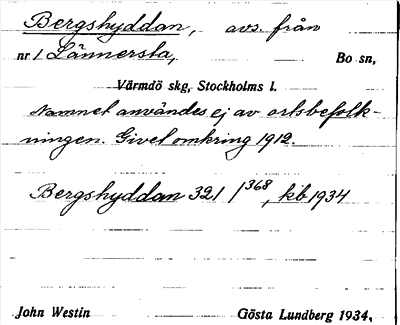 Bergshyddan, avs. från
nr 1 Lännersta, Bo sn,
Värmdö skg, Stockholms l.
Namnet användes ej av ortsbefolk-
ningen. Givet omkring 1912.
Bergshyddan 321 / 368, kb 1934
John Westin Gösta Lundberg 1934.